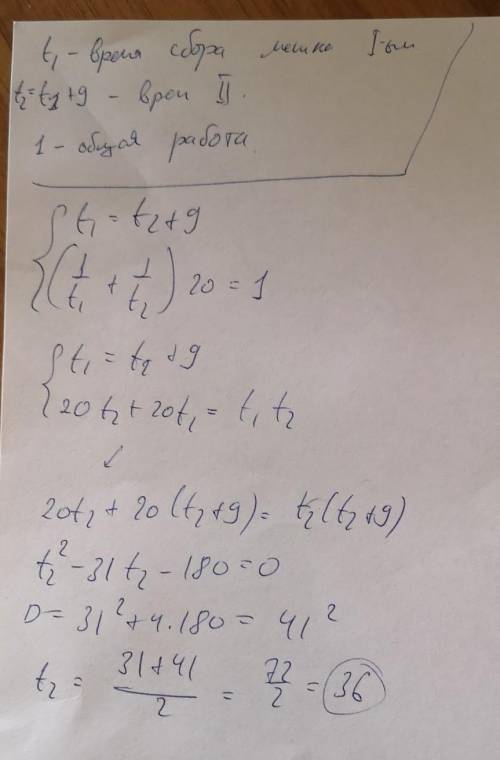 t₁ - время сбора мешка I-ым
t₂=t₁+9 - врем II.
1 - общая работа.
{ t₁ = t₂+9
(1/t₁ + 1/t₂) 20 = 1
{ t₁ = t₂ +9
20t₂ + 20t₁ = t₁ t₂
↙
20t₂ + 20(t₂+9) = t₂(t₂+9)
t₂² - 31t₂ - 180 = 0
D = 31² + 4·180 = 41²
t₂ = (31+41)/2 = 72/2 = 36